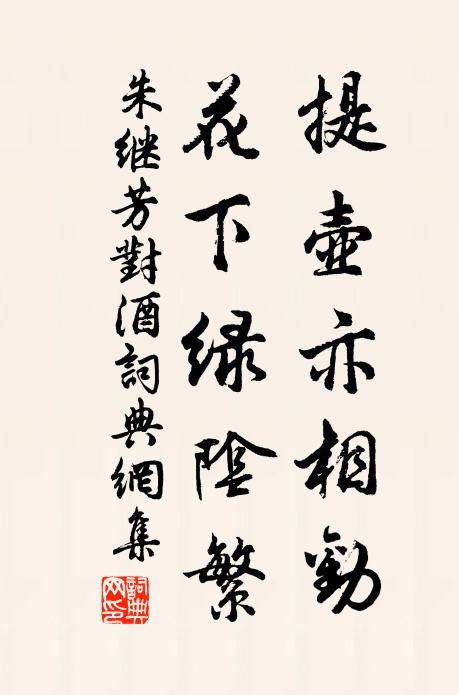 提壺亦相勸
花下绿陰繁
朱继芳對酒詞典網集
詞典网印